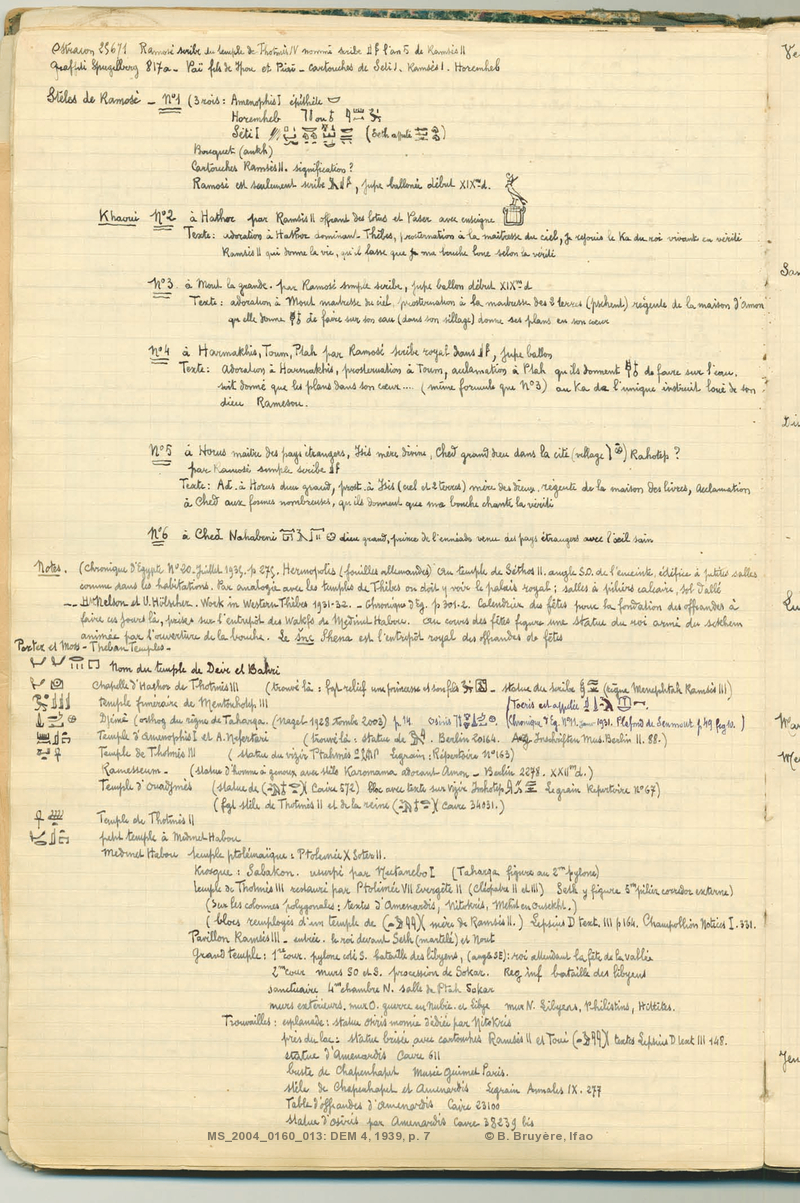 Ostracon 25671 Ramosé scribe du temple de Thotmès IV nommé scribe l'an 5 de Ramsès II
Graffiti Spiegelberg 817a _ Paï fils de Ipou et Piaï _ cartouches de Séti I, Ramsès I. Horemheb
Stèles de Ramosé _ N°1 (3 rois: Amenophis I épithète
Horemheb ou
Séti I (Seth appelé )
Bouquet (ankh)
Cartouches Ramsès II. signification?
Ramosé est seulement scribe , jupe ballonée début XIXme d.
Khaoui N°2 à Hathor par Ramsès II offrant des lotus et Paser avec enseigne
Texte: adoration à Hathor dominant Thèbes, prosternation à la maitresse du ciel, je réjouis le Ka du roi vivant en vérité
Ramsès II qui donne la vie, qu'il fasse que ma bouche loue selon la vérité
N°3 à Mout la grande. par Ramosé simple scribe, jupe ballon début XIXme d
Texte: adoration à Mout maitresse du ciel, prosternation à la maitresse des 2 terres (pschent) régente de la maison d'Amon
qu'elle donne de faire sur son eau (dans son sillage) donne ses plans en son cœur
N°4 à Harmakhis, Toum, Ptah par Ramosé scribe royal dans , jupe ballon
Texte: Adoration à Harmakhis, prosternation à Toum, acclamation à Ptah qu'ils donnent de faire sur l'eau.
soit donné que les plans dans son cœur.... (même formule que N°3) au Ka de l'unique instruit loué de son
dieu Ramesou.
N°5 à Horus maitre des pays étrangers, Isis mère divine, Ched grand dieu dans la cité (village ) Rahotep ?
par Ramosé simple scribe
Texte: Ad. à Horus dieu grand, prost. à Isis (ciel et 2 terres) mère des dieux, régente de la maison des livres, Acclamation
à Ched aux formes nombreuses, qu'ils donnent que ma bouche chante la vérité
N°6 à Ched Nahabeni dieu grand, prince de l'ennéade venu des pays étrangers avec l'œil sain
Notes. (Chronique d'Egypte N°20. Juillet 1935. p. 275. Hermopolis (fouilles allemandes) au temple de Séthos II. angle S.O. de l'enceinte, édifice à petites salles
comme dans les habitations. Par analogie avec les temples de Thèbes on doit y voir le palais royal; salles à piliers calcaire, sol dallé
_ H. Nelson et U. Hölscher. Work in Western Thèbes 1931-32. _ Chronique d'Eg. p 301-2. Calendrier des fêtes pour la fondation des offrandes à
faire ces jours là, prises sur l'entrepôt des Wakfs de Medinet Habou. au cours des fêtes figure une statue du roi armé du sekhem
animée par l'ouverture de la bouche. Le šnc Shena est l'entrepôt royal des offrandes de fêtes
Porter et Moss _ Theban Temples _
Nom du temple de Deir el Bahri
Chapelle d'Hathor de Thotmès III (trouvé là: fgt relief une princesse et son fils _ statue du scribe (règne Menephtah Ramsès III)
temple funéraire de Mentouhotep III (Toëris est appelée
Djimé (orthog du règne de Taharqa. (Nagel 1928 tombe 2003) p. 14. Osiris . (Chronique d'Eg. N°11 Janv 1931. Plafond de Senmout. p. 49 fig 10.)
Temple d'Amenophis I et A. Nefertari (trouvé là: statue de . Berlin 20164. Aeg Inschriften Mus. Berlin II. 88.)
Temple de Thotmès III (statue du vizir Ptahmès Legrain: Répertoire N°163)
Ramesseum _ (statue d'homme à genoux avec stèle Karomama adorant Amon _ Berlin 2278. XXIIme d.)
Temple d'Ouadjmès (statue de ( Caire 572) Bloc avec texte sur vizir Imhotep Legrain Repertoire N°67)
(fgt stèle de Thotmès II et de la reine ( Caire 34031.)
Temple de Thotmès II
petit temple à Médinet Habou
Medinet Habou temple ptolémaïque: Ptolémée X Soter II.
Kiosque: Sabakon. usurpé par Nectanebo I (Taharqa figure au 2me pylone)
temple de Thotmès III restauré par Ptolémée VII Evergète II (Cléopâtre II et III) Seth y figure 5me pilier corridor externe)
(Sur les colonnes polygonales: textes d'Amenardis, Nitokris, Mehit en Ousekht.)
(blocs remployés d'un temple de ( mère de Ramsès II.) Lepsius D text. III p 164. Champollion Notices I. 331.
Pavillon Ramsès III _ entrée. le roi devant Seth (martelé) et Nout
Grand temple: 1re cour. pylone côté S. bataille des libyens, (angle SE): roi attendant la fête de la vallée
2me cour murs SO et S. procession de Sokar. Reg inf bataille des libyens
sanctuaire 4me chambre N. salle de Ptah Sokar
murs extérieurs. mur O. guerre en Nubie et Libye mur N. Libyens, Philistins, Hittites.
Trouvailles: esplanade: statue osiris momie dédiée par Nitokris
près du lac: statue brisée avec cartouches Ramsès II et Toui ( textes Lepsius D text III 148.
statue d'Amenardis Caire 611
buste de Chapenhapt Musée Guimet Paris.
stèle de Chapenhapt et Amenardis Legrain Annales IX. 277
Table d'offrandes d'Amenardis Caire 23100
statue d'osiris par Amenardis Caire 38239 bis
MS_2004_0160_013: DEM 4, 1939, p. 7 © B. Bruyère, Ifao